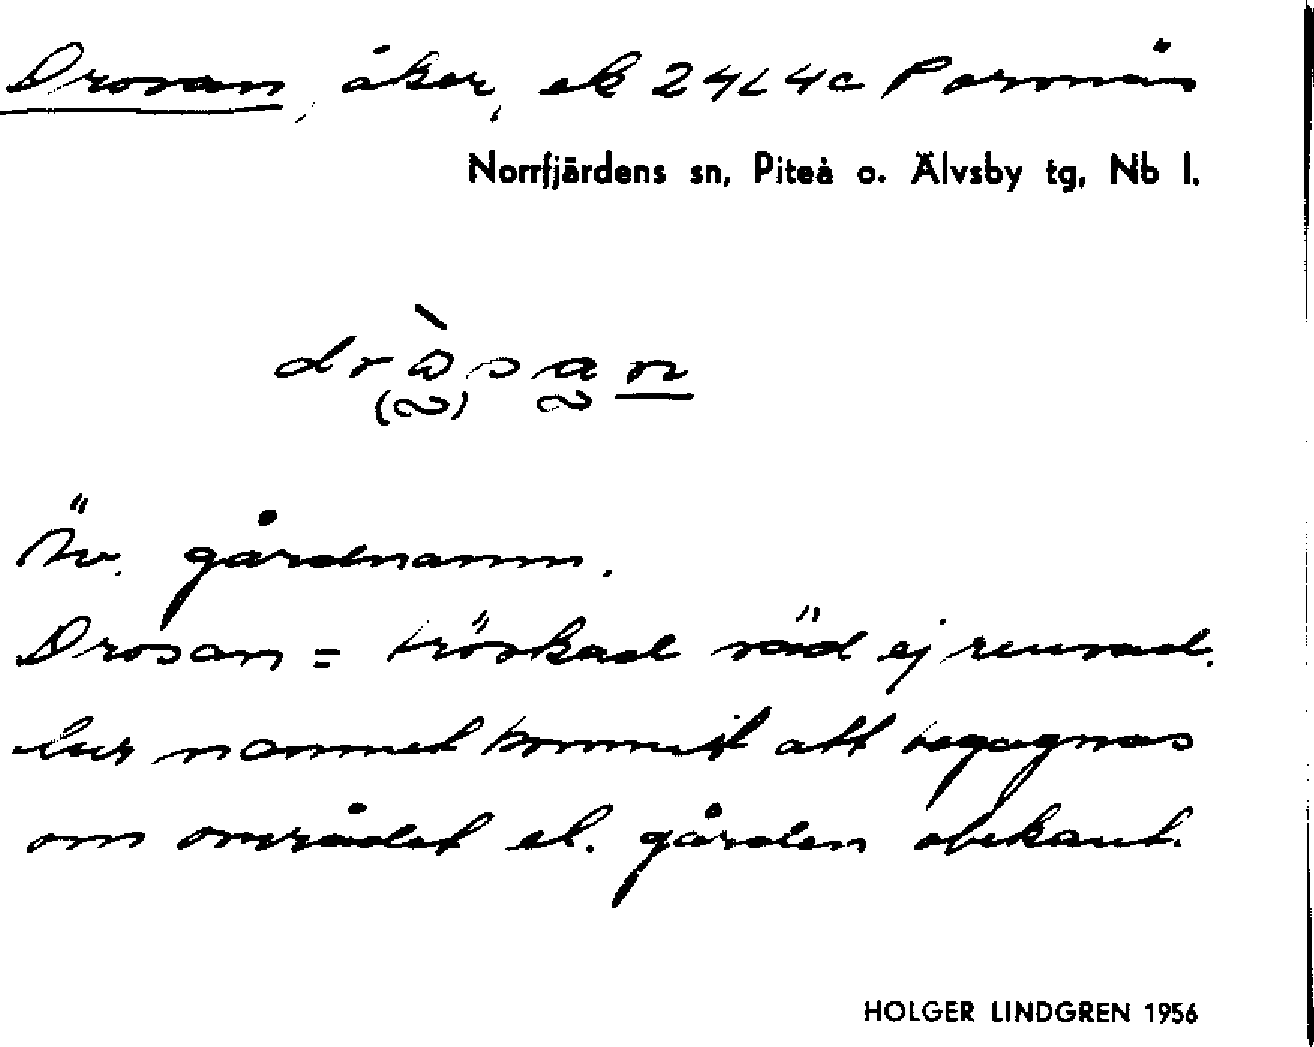 Drosan, åker, ek 24L4c Porsnäs
Norrfjärdens sn, Piteå o. Älvsby tg, Nb l.
Äv. gårdnamn.
Drosan = tröskad säd ej rensad.
hur namnet kommit att begagnas
om området el. gården obekant.
HOLGER LINDGREN 1956